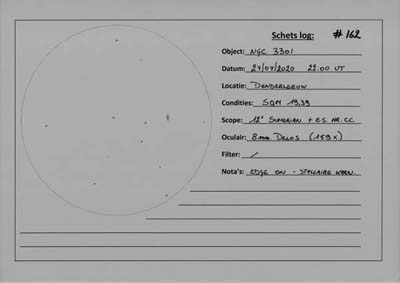 Schets log: #162
Object: NGC 3301
Datum: 24/04/2020 22:00 UT
Locatie: Denderleeuw
Condities: SQM 19.39
Scope: 12" Sumerian + E.S. HR.CC
Oculair: 8mm Delos (159x)
Filter: /
Nota's: EDGE ON - STELLAIRE KERN.